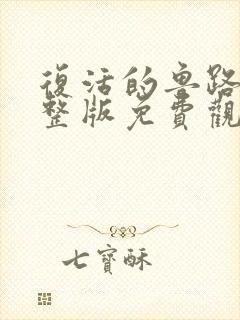 復活的魯路
整版免費觀
七寶酥